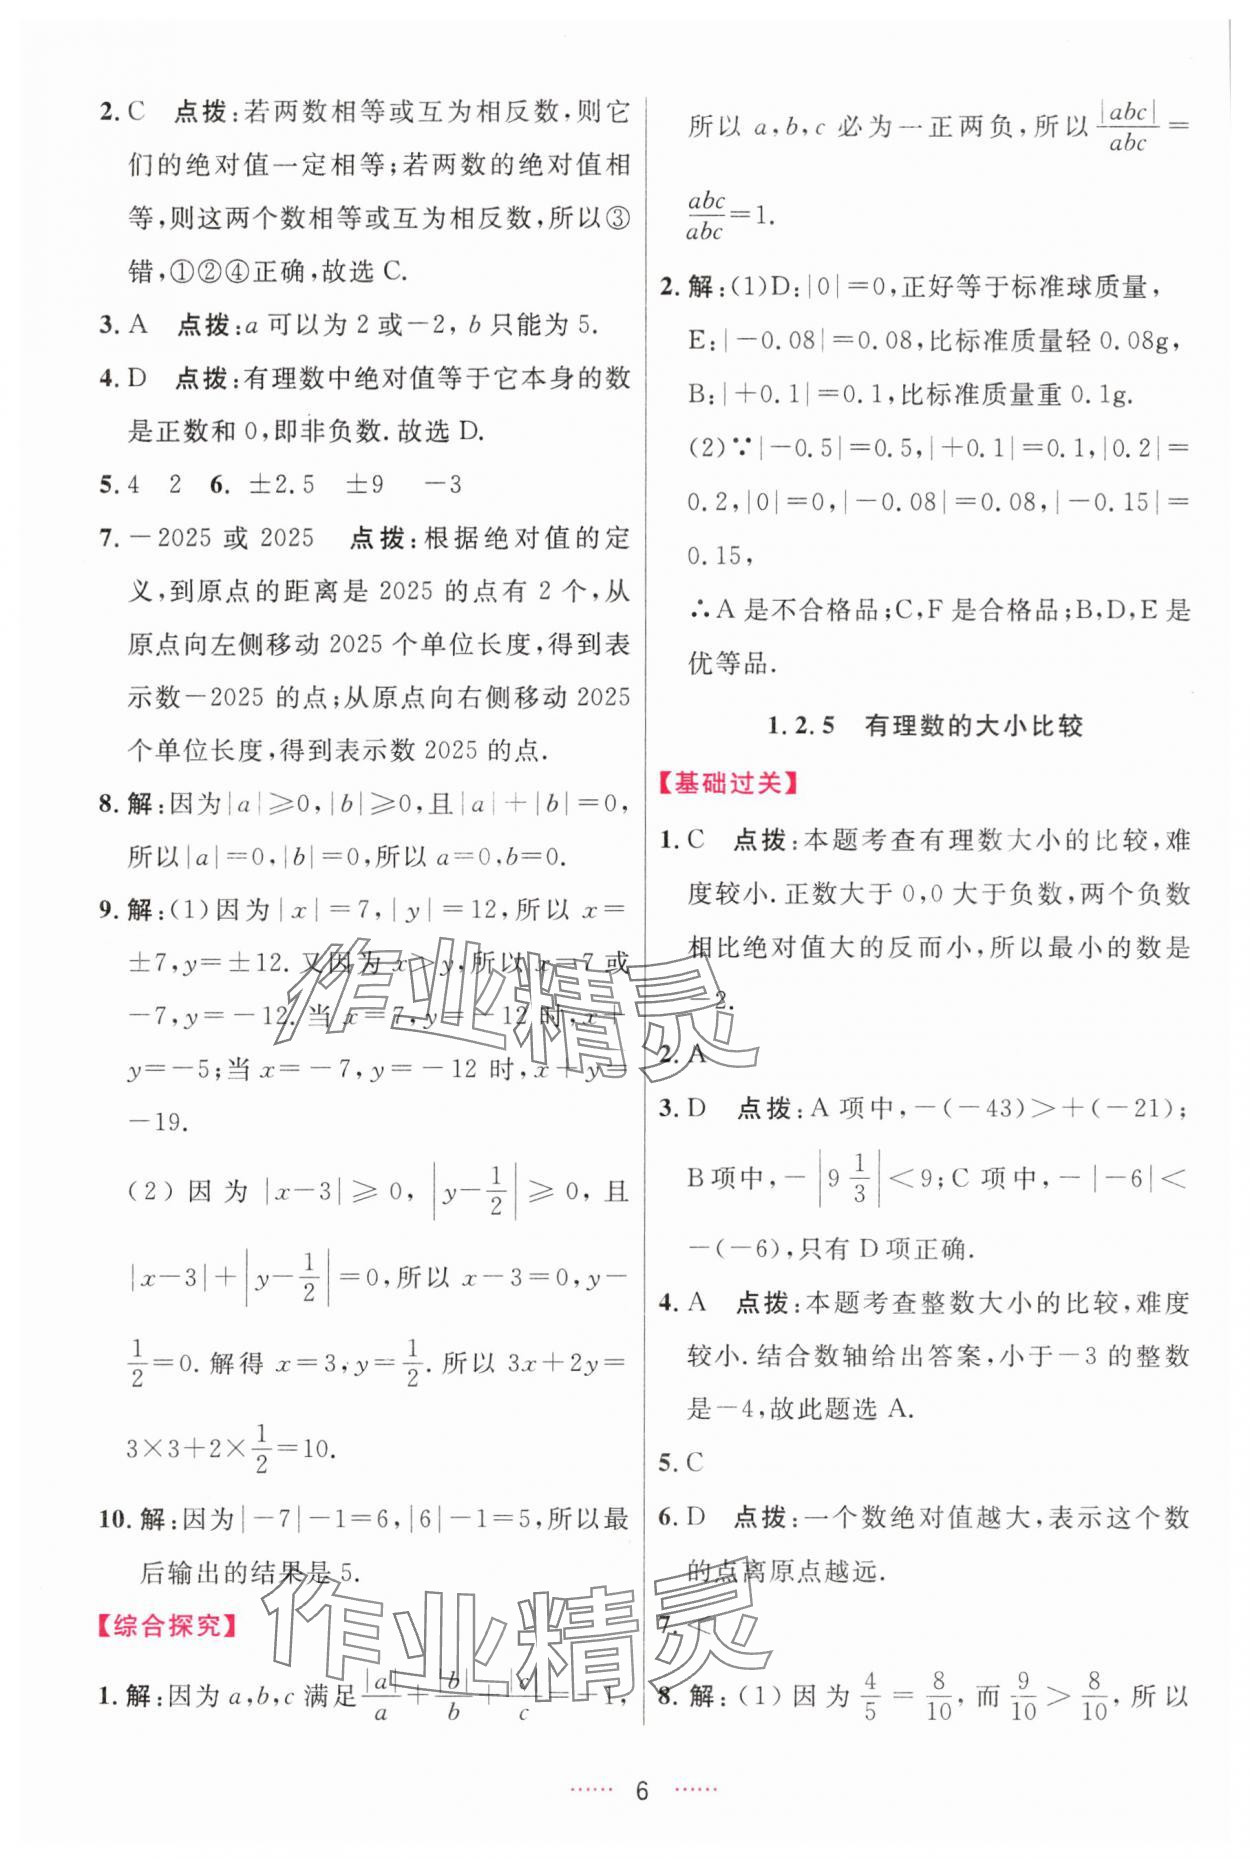 2. C　点拨:若两数相等或互为相反数,则它
们的绝对值一定相等;若两数的绝对值相
等,则这两个数相等或互为相反数,所以③
错,①②④正确,故选 C.
3. A　点拨:a 可以为 2 或−2, b 只能为 5.
4. D　点拨:有理数中绝对值等于它本身的数
是正数和 0,即非负数.故选 D.
5. 4　2　6. ±2.5　±9　−3
7. −2025 或 2025　点拨:根据绝对值的定
义,到原点的距离是 2025 的点有 2 个,从
原点向左侧移动 2025 个单位长度,得到表
示数−2025 的点;从原点向右侧移动 2025
个单位长度,得到表示数 2025 的点.
8. 解:因为|a|≥0,|b|≥0,且|a|+|b|=0,
所以|a|=0,|b|=0,所以 a=0,b=0.
9. 解:(1)因为|x|=7,|y|=12,所以 x=
±7,y=±12. 又因为 x>y,所以 x=7 或
−7,y=−12. 当 x=7,y=−12 时,x+
y=−5;当 x=−7,y=−12 时,x+y=
−19.
(2)因为|x−3|≥0,|y−1/2|≥0,且
|x−3|+|y−1/2|=0,所以 x−3=0,y−
1/2=0. 解得 x=3,y=1/2. 所以 3x+2y=
3×3+2×1/2=10.
10. 解:因为|−7|−1=6,|6|−1=5,所以最
后输出的结果是 5.
【综合探究】
1. 解:因为 a,b,c 满足|a|/a+|b|/b+|c|/c=−1,
所以 a,b,c 必为一正两负,所以|abc|/abc=
abc/abc=1.
2. 解:(1)D:|0|=0,正好等于标准球质量,
E:|−0.08|=0.08,比标准质量轻 0.08g,
B:|+0.1|=0.1,比标准质量重 0.1g.
(2)∵|−0.5|=0.5,|+0.1|=0.1,|0.2|=
0.2,|0|=0,|−0.08|=0.08,|−0.15|=
0.15,
∴A 是不合格品;C,F 是合格品;B,D,E 是
优等品.
1.2.5　有理数的大小比较
【基础过关】
1. C　点拨:本题考查有理数大小的比较,难
度较小. 正数大于 0,0 大于负数,两个负数
相比绝对值大的反而小,所以最小的数是
−2.
2. A
3. D　点拨:A 项中,−(−43)>+(−21);
B 项中,−|9 1/3|<9;C 项中,−|−6|<
−(−6),只有 D 项正确.
4. A　点拨:本题考查整数大小的比较,难度
较小. 结合数轴给出答案,小于−3 的整数
是−4,故此题选 A.
5. C
6. D　点拨:一个数绝对值越大,表示这个数
的点离原点越远.
7. <
8. 解:(1)因为 4/5=8/10,而 9/10>8/10,所以
作业精灵
作业精灵
······ 6 ······